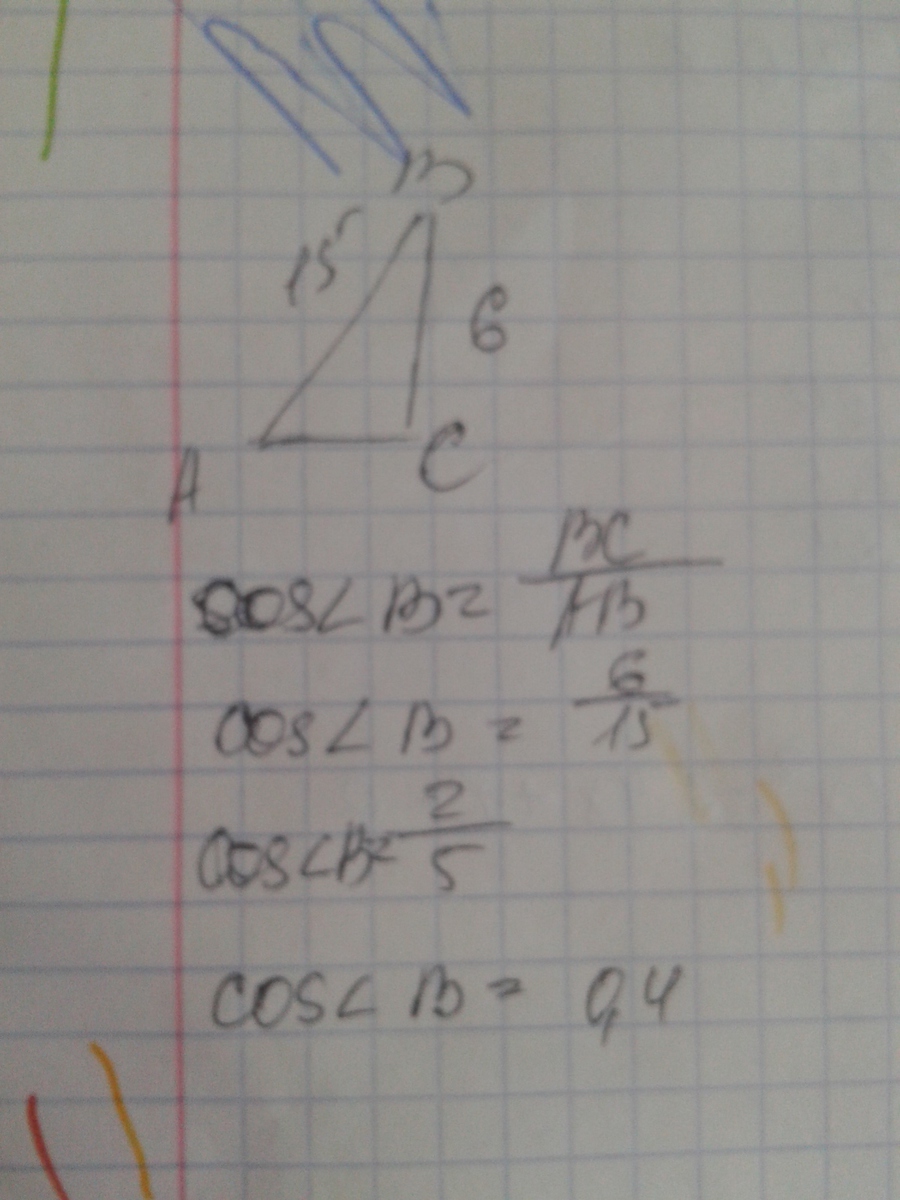 B
15
6
A
C
cos∠B = BC/AB
cos∠B = 6/15
cos∠B = 2/5
cos∠B = 0,4